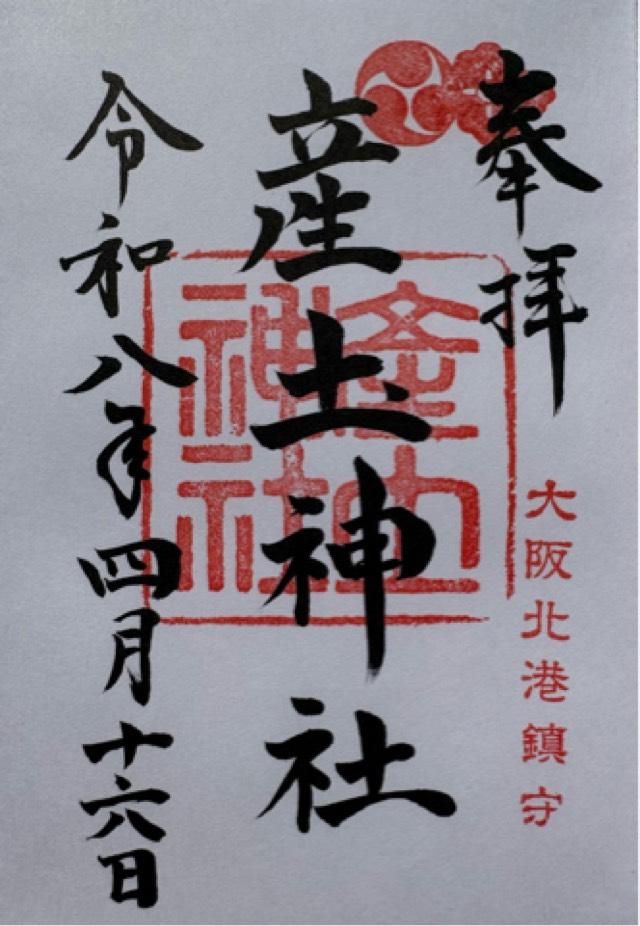 奉拝
大阪北港鎮守
産土神社
産土神社
令和八年四月十六日